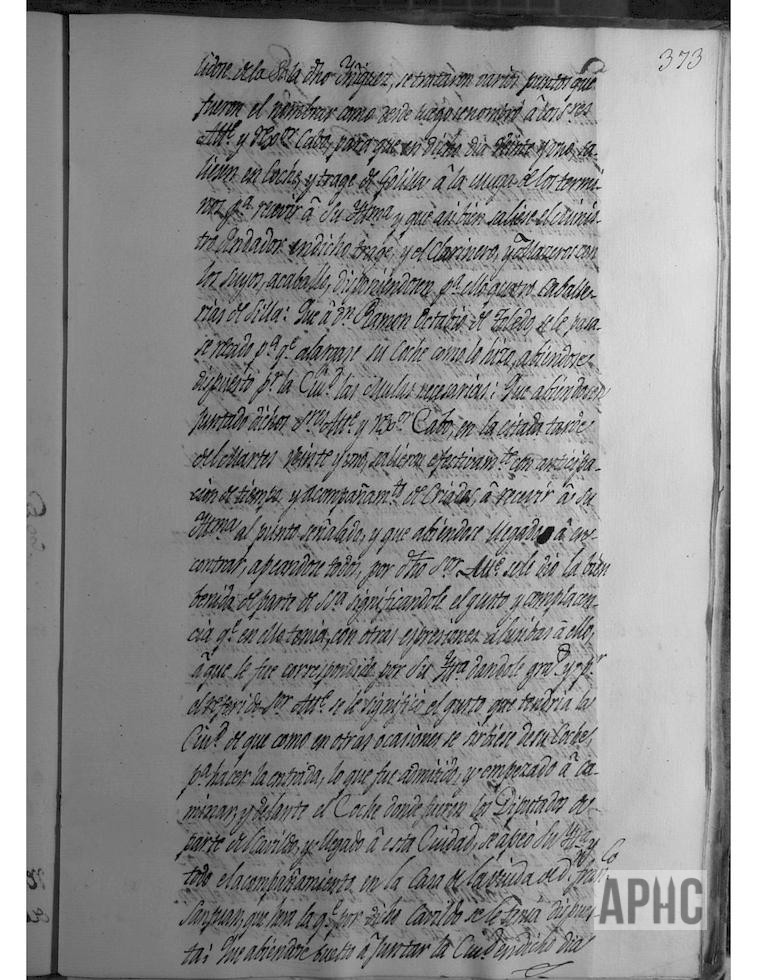 373
lidore de la Sala dho Iniguez, se trataron varios puntos que
fueron el nombrar como desde luego se nombró â los Sres
Alle y Dor Cabo, para que en dicho dia veinte y uno, sa-
liesen en Coche, y trage de Golilla â la Muga de los termi-
nos, pa recivir â Su Ittma y que asi bien saliese el Minis-
tro Andador en dicho trage, y el Clarinero, y Mazeros con
los suyos, acaballo, disponiendosen pa ello quatro Caballe-
rias de Silla: Que â Dn Ramon Octabio de Toledo, se le pasa-
se recado pa qe alargase su Coche como lo hizo, abiendose
dispuesto pr la Ciud las Mulas necesarias: Que abiendosen
juntado dichos Sres Alle y Cabo, en la citada tarde
del Martes veinte y uno, salieron efectivamte con anticipa-
cion de tiempo, y acompañamto de Criados, â recivir â su
Ittma al puesto señalado, y que abiendose llegado â en-
contrar, apeandose todos, por dho Sor Alle se le dio la bien
benida de parte de SSa significandole el gusto y complacen-
cia qe en ella tenia, con otras espresiones â ello,
â que se fue correspondido por Su Ittma dandole gras y pr
el referido Sor Alle se le significó el gusto que tendria la
Ciud de que como en otras ocasiones se sirbiese de su Coche,
pa hacer la entrada, lo que fue admitido, y empezado â ca-
minar, y delante el Coche donde fueron los Diputados de
parte del Cavildo, y llegado â esta Ciudad, se apeó Su Ittma y
todo el acompañamiento en la Casa de la viuda de Dn Franco
Sanjuan, que hera la qe por dicho Cavildo se le tenia dispues-
ta: Que abiendose buelto â juntar la Ciud en dicho dia
APHC